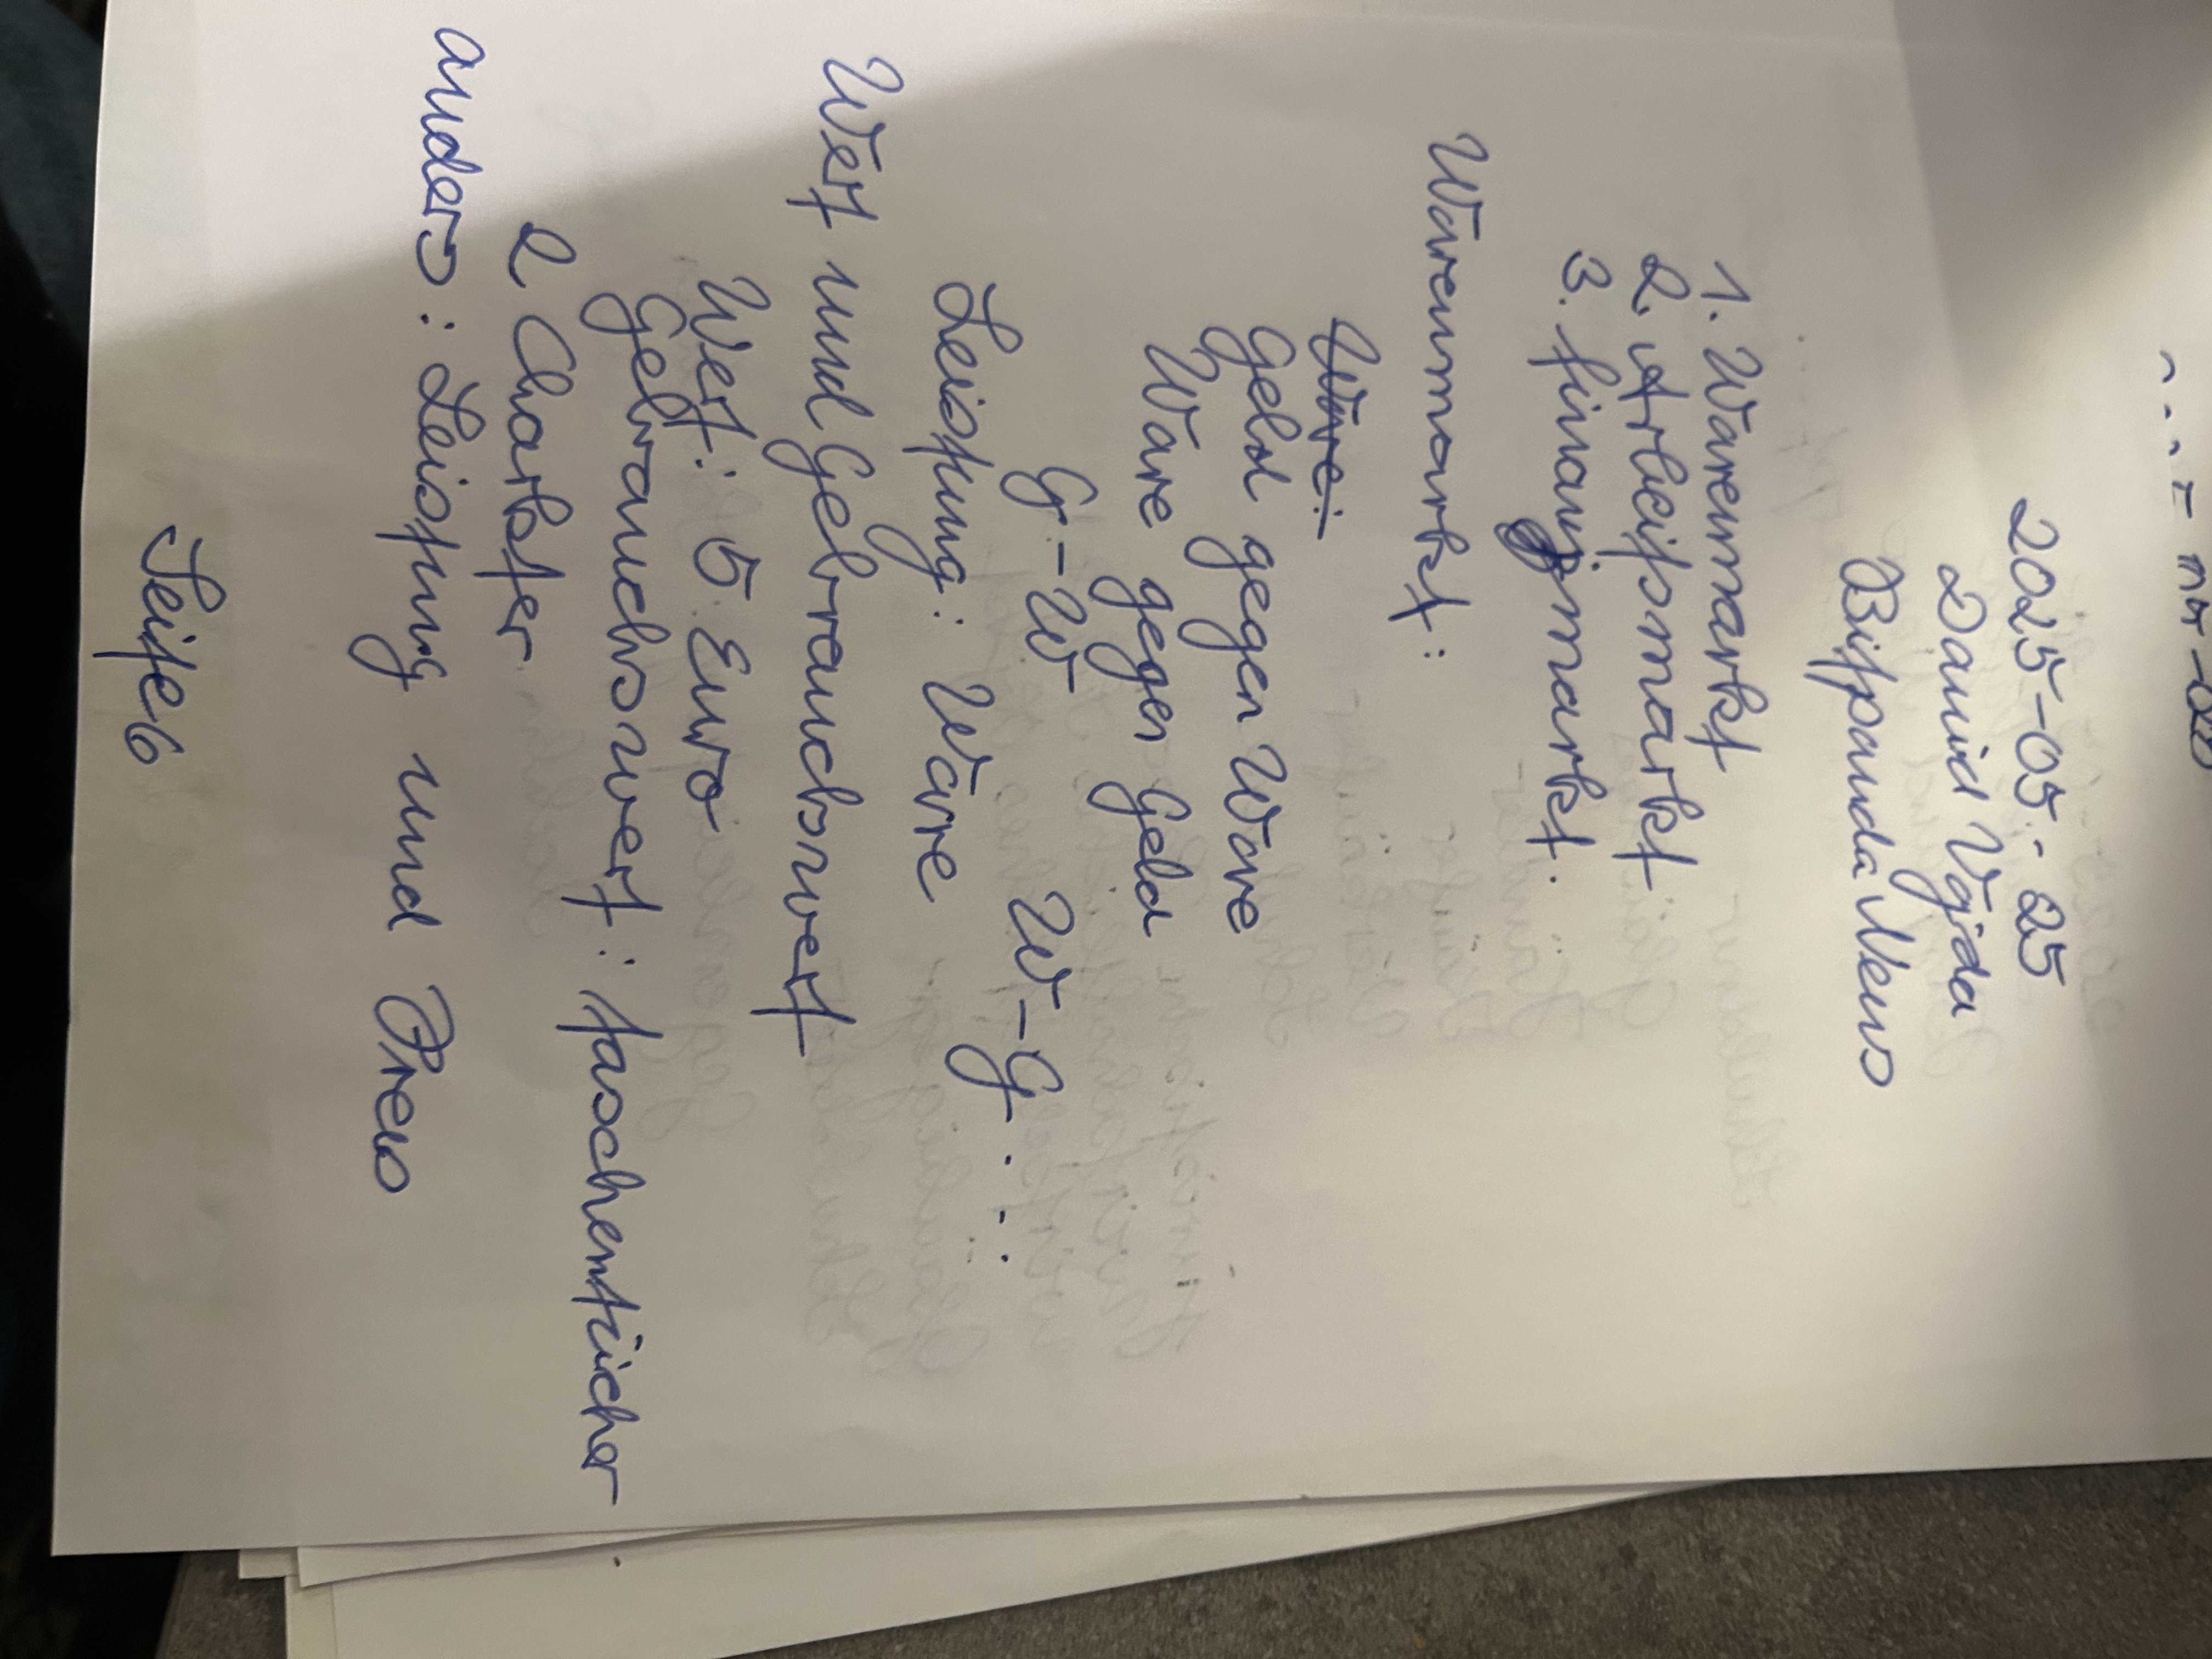 2025-05-25
David Vajda
1. Warenmarkt
2. Arbeitsmarkt
3. Finanzmarkt.
Warenmarkt:
Ware:
Geld gegen Ware
Ware gegen Geld
G-W W-G...
Leistung: Ware
Wert und Gebrauchswert
Wert: 5 Euro
Gebrauchswert: Taschentücher
2 Charkter
anders: Leistung und Preis
Seite 6